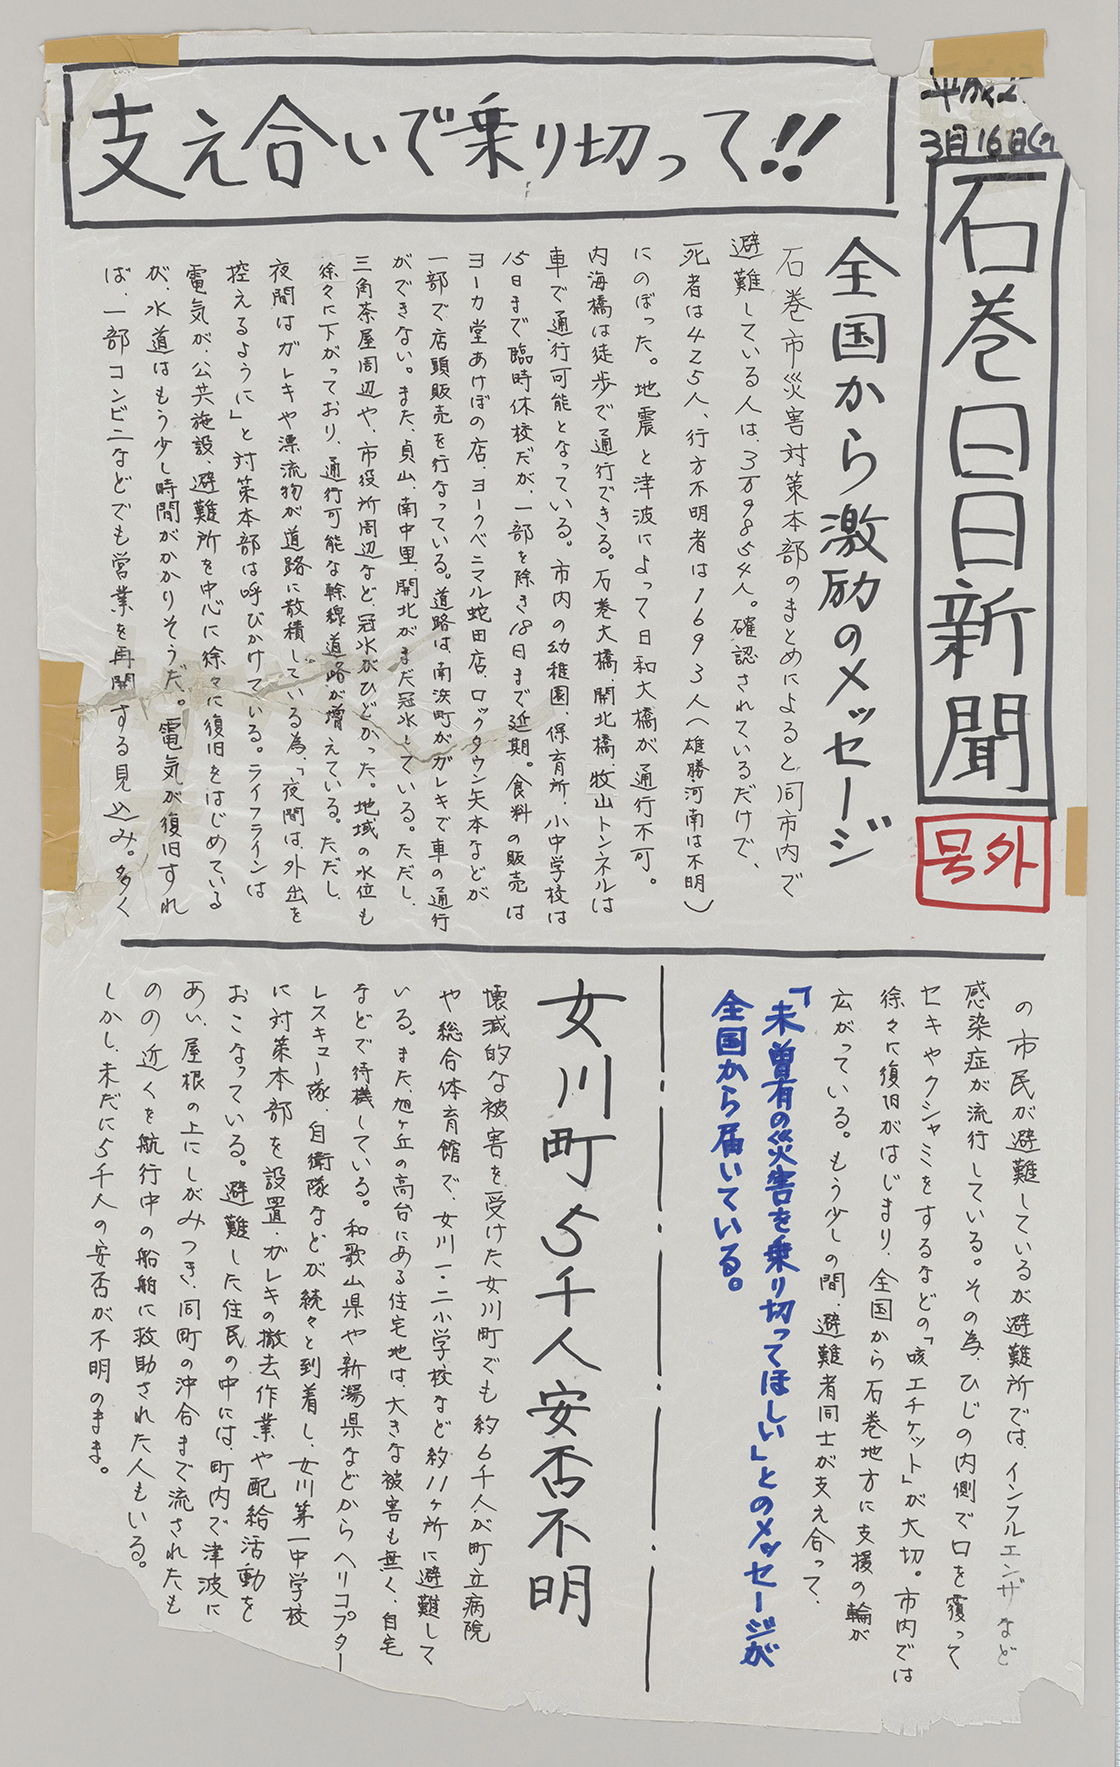 平成2
3月16日(
石巻日日新聞
号外
支え合いで乗り切って!!
全国から激励のメッセージ
石巻市災害対策本部のまとめによると同市内で
避難している人は、3万9854人。確認されているだけで、
死者は425人、行方不明者は1693人(雄勝・河南は不明)
にのぼった。地震と津波によって日和大橋が通行不可。
内海橋は徒歩で通行できる。石巻大橋、開北橋、牧山トンネルは
車で通行可能となっている。市内の幼稚園、保育所、小中学校は
15日まで臨時休校だが、一部を除き18日まで延期。食料の販売は
ヨーカ堂あけぼの店、ヨークベニマル蛇田店、ロックタウン矢本などが
一部で店頭販売を行なっている。道路は南浜町がガレキで車の通行
ができない。また、貞山、南中里、開北がまだ冠水している。ただし、
三角茶屋周辺や、市役所周辺など、冠水がひどかった。地域の水位も
徐々に下がっており、通行可能な幹線道路が増えている。ただし、
夜間はガレキや漂流物が道路に散積している為、「夜間は、外出を
控えるように」と対策本部は呼びかけている。ライフラインは
電気が、公共施設、避難所を中心に徐々に復旧をはじめている
が、水道はもう少し時間がかかりそうだ。電気が復旧すれ
ば、一部コンビニなどでも営業を再開する見込み。多く
の市民が避難しているが避難所では、インフルエンザなど
感染症が流行している。その為、ひじの内側で口を覆って
セキやクシャミをするなどの「咳エチケット」が大切。市内では
徐々に復旧がはじまり、全国から石巻地方に支援の輪が
広がっている。もう少しの間、避難者同士が支え合って、
「未曽有の災害を乗り切ってほしい」とのメッセージが
全国から届いている。
女川町5千人安否不明
壊滅的な被害を受けた女川町でも約6千人が町立病院
や総合体育館で、女川一、二小学校など約11ヶ所に避難して
いる。また、旭ヶ丘の高台にある住宅地は、大きな被害も無く、自宅
などで待機している。和歌山県や新潟県などからヘリコプター
レスキュー隊、自衛隊などが続々と到着し、女川第一中学校
に対策本部を設置、ガレキの撤去作業や配給活動を
おこなっている。避難した住民の中には、町内で津波に
あい、屋根の上にしがみつき、同町の沖合まで流されたも
のの近くを航行中の船舶に救助された人もいる。
しかし、未だに5千人の安否が不明のまま。